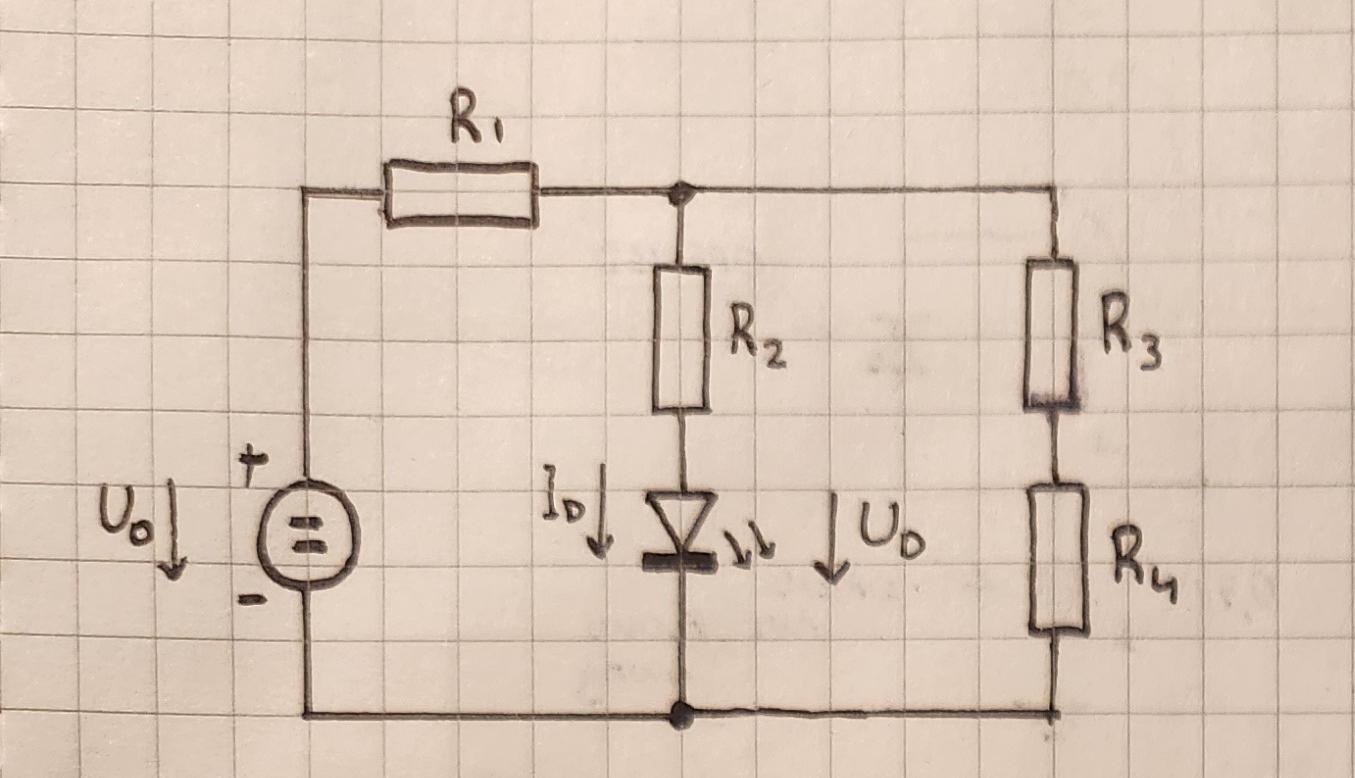 R1
R2
R3
+
U0
ID
UD
R4
-